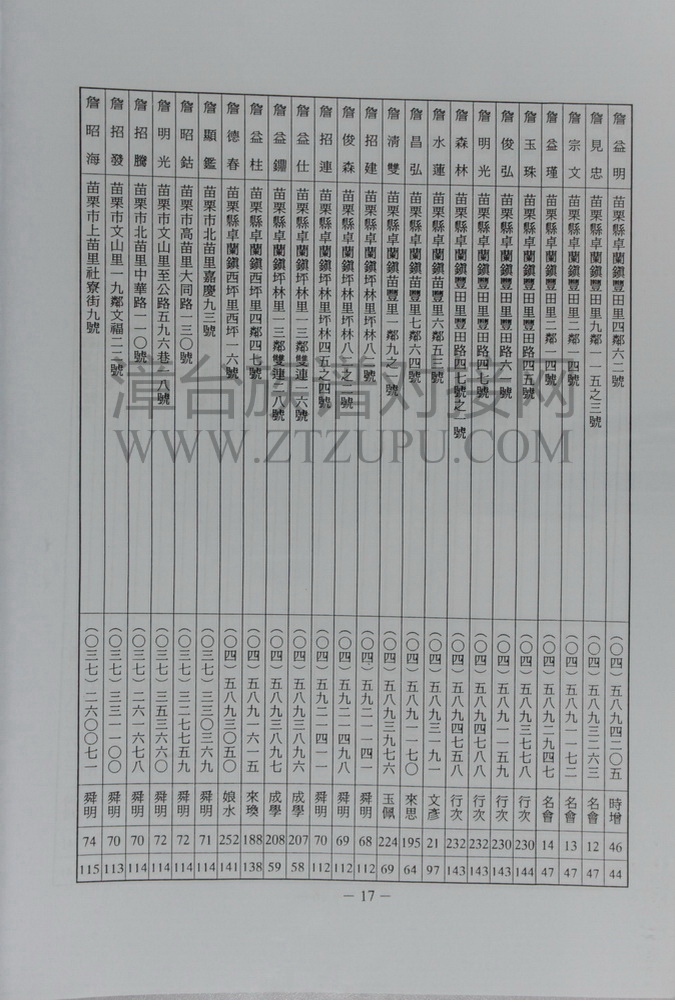 詹益明 苗栗縣卓蘭鎮豐田里四鄰六二號 (〇四)五八九四二〇五 時增 46 44
詹見忠 苗栗縣卓蘭鎮豐田里九鄰一一五之三號 (〇四)五八九三二六三 名會 12 47
詹宗文 苗栗縣卓蘭鎮豐田里二鄰一四號 (〇四)五八九一一七二 名會 13 47
詹益瑾 苗栗縣卓蘭鎮豐田里二鄰一四號 (〇四)五八九二九四七 名會 14 47
詹玉珠 苗栗縣卓蘭鎮豐田里豐田路四五號 (〇四)五八九三七七八 行次 230 144
詹俊弘 苗栗縣卓蘭鎮豐田里豐田路六一號 (〇四)五八九一一五九 行次 230 143
詹明光 苗栗縣卓蘭鎮豐田里豐田路四七號 (〇四)五八九四七八八 行次 232 143
詹森林 苗栗縣卓蘭鎮豐田里豐田路四七號之一號 (〇四)五八九四七五八 行次 232 143
詹水蓮 苗栗縣卓蘭鎮苗豐里六鄰五三號 (〇四)五八九三一九一 文彥 21 97
詹昌弘 苗栗縣卓蘭鎮苗豐里七鄰六四號 (〇四)五八九一一七〇 來思 195 64
詹清雙 苗栗縣卓蘭鎮苗豐里一鄰九之一號 (〇四)五八九三九七六 玉佩 224 69
詹招建 苗栗縣卓蘭鎮坪林里坪林八一號 (〇四)五九二一一四一 舜明 68 112
詹俊森 苗栗縣卓蘭鎮坪林里坪林八一之一號 (〇四)五九二一四九八 舜明 69 112
詹招連 苗栗縣卓蘭鎮坪林里坪林四五之四號 (〇四)五九二一四一一 舜明 70 112
詹益仕 苗栗縣卓蘭鎮坪林里一三鄰雙連二六號 (〇四)五八九三八九六 成學 207 58
詹益鐤 苗栗縣卓蘭鎮坪林里一三鄰雙連二八號 (〇四)五八九三八九七 成學 208 59
詹益柱 苗栗縣卓蘭鎮西坪里四鄰四七號 (〇四)五八九一六一五 來喚 188 138
詹德春 苗栗縣卓蘭鎮西坪里西坪一六號 (〇四)五八九三〇五〇 娘水 252 141
詹顯鑑 苗栗市北苗里嘉慶九三號 (〇三七)三三〇三六九 舜明 71 114
詹昭鈷 苗栗市高苗里大同路一三〇號 (〇三七)三二七七五九 舜明 72 114
詹明光 苗栗市文山里至公路五九六巷一八號 (〇三七)三五三六六〇 舜明 72 114
詹招騰 苗栗市北苗里中華路一一〇號 (〇三七)二六一六七八 舜明 70 114
詹招發 苗栗市文山里一九鄰文福二二號 (〇三七)三三一一〇〇 舜明 70 113
詹昭海 苗栗市上苗里社寮街九號 (〇三七)二六〇〇七一 舜明 74 115
— 17 —
漳台族谱对接网
WWW.ZTZUPU.COM